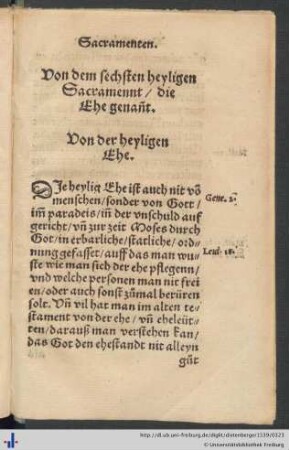 Sacramenten.
Von dem sechsten heyligen
Sacramennt / die
Ehe genañt.
Von der heyligen
Ehe.
DIe heylig Ehe ist auch nit võ
menschen / sonder von Gott /
im̃ paradeis / im̃ der vnschuld auf
gericht / vñ zur zeit Moses durch
Got / in erbarliche / statliche / ord-
nung gefasset / auff das man wu-
ste wie man sich der ehe pflegenn /
vnd welche personen man nit frei
en / oder auch sonst zůmal berüren
solt. Vñ vil hat man im alten te-
stament von der ehe / vñ eheleüt-
ten / darauß man verstehen kan /
das Got den ehestandt nit alleyn
güt
Gene. 2.
Leui. 18.
http://dl.ub.uni-freiburg.de/diglit/dietenberger1539/0323
© Universitätsbibliothek Freiburg